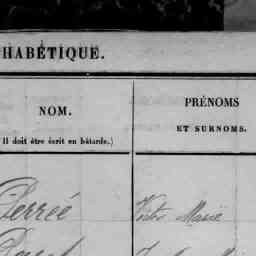 HABÉTIQUE.
NOM.
Il doit être écrit en bâtarde.)
PRÉNOMS
ET SURNOMS.
Perreé Victor Marie